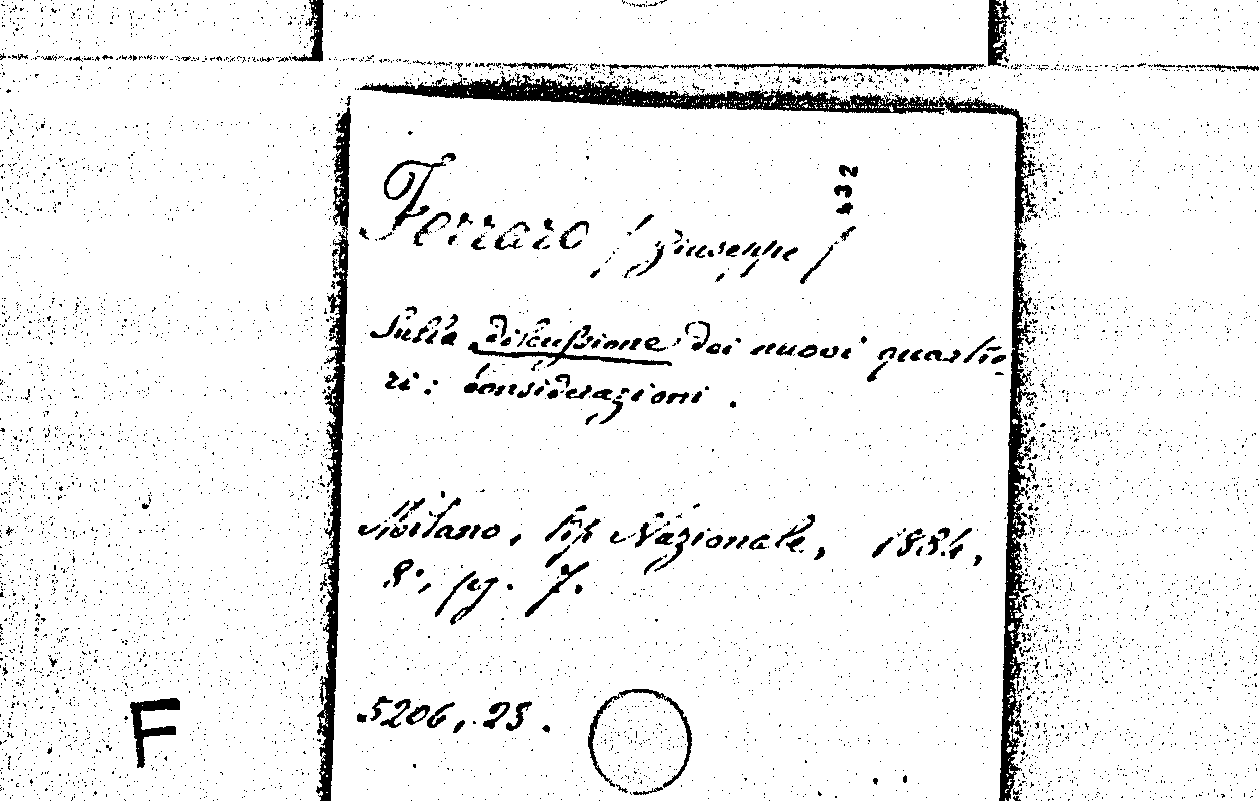 432
Ferraro / Giuseppe /
Sulla discussione dei nuovi quartie-
ri: considerazioni.
Milano, tip Nazionale, 1884,
8°, pg. 7.
5206, 23.
F